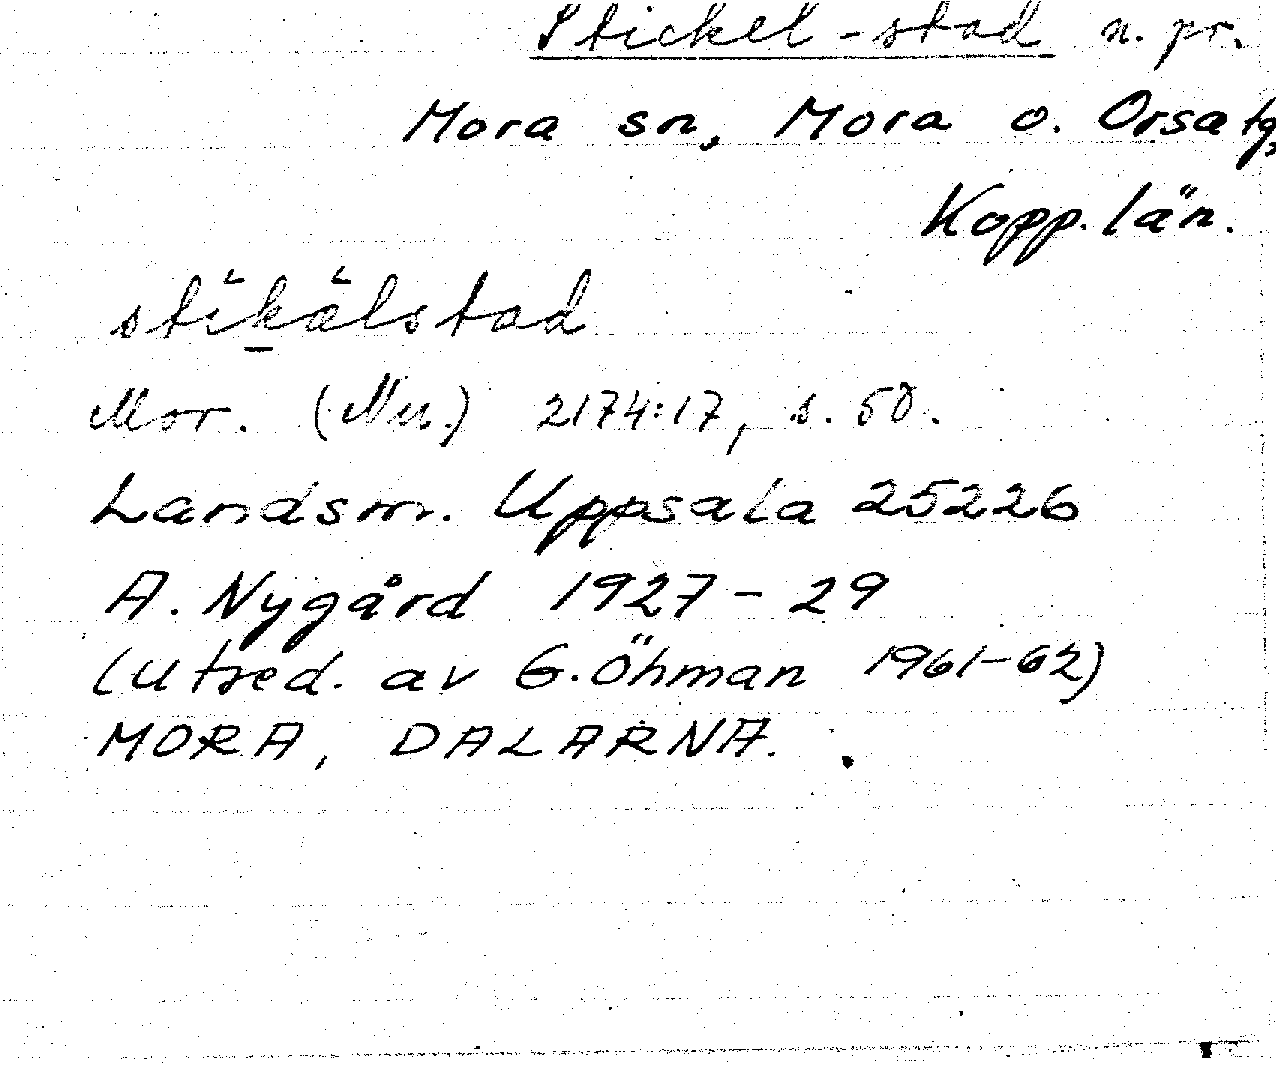 Stickel-stad n. pr.
Mora sn, Mora o. Orsa tg,
Kopp. län.
stikälstad
Mor. (Nu.) 2174:17, s. 50.
Landsm. Uppsala 25226
A. Nygård 1927-29
(Utred. av G. Öhman 1961-62)
MORA, DALARNA.